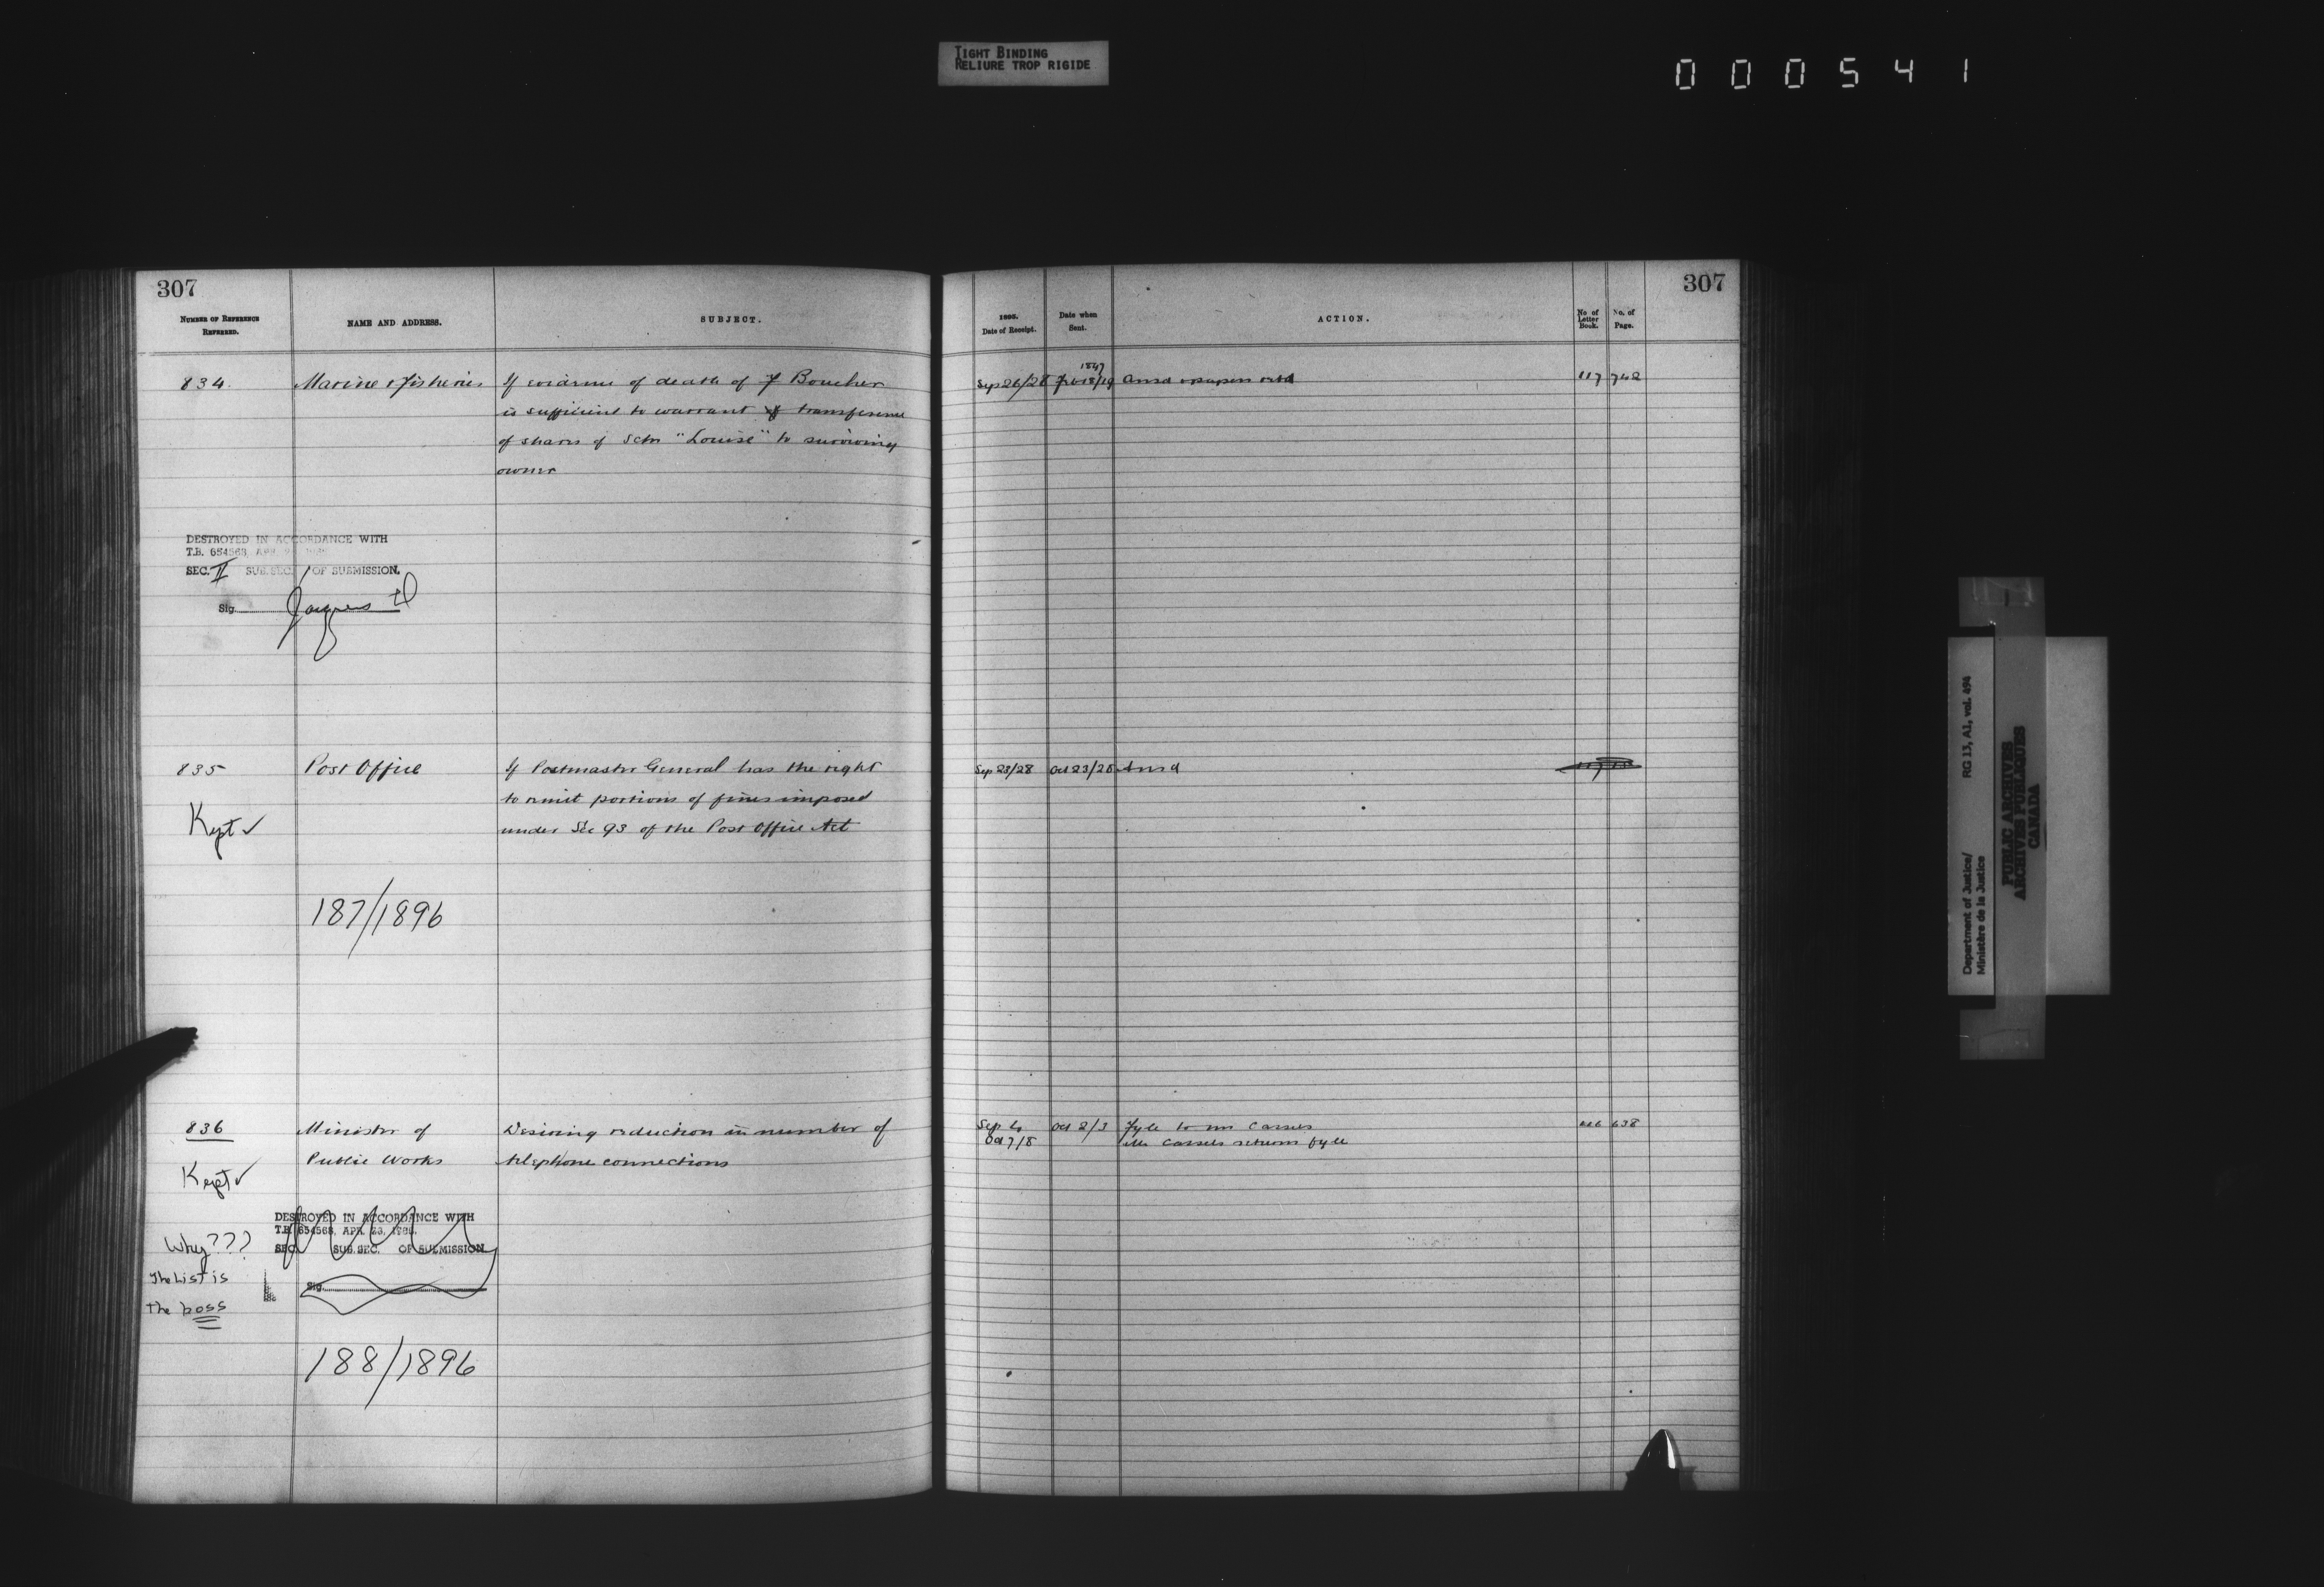 TIGHT BINDING
RELIURE TROP RIGIDE
000541
307
NUMBER OF REFERENCE
REFERRED.
NAME AND ADDRESS.
SUBJECT.
834.
Marine & Fisheries
If evidence of death of F Boucher
is sufficient to warrant transference
of shares of Schr "Louise" to surviving
owner
DESTROYED IN ACCORDANCE WITH
T.B. 654568, APR.
SEC. II SUB. SEC. 1 OF SUBMISSION.
Sig.
835
Post Office
If Postmaster General has the right
to remit portions of fines imposed
under Sec 93 of the Post Office Act
Kept ✓
187/1896
836
Minister of
Public Works
Desiring reduction in number of
telephone connections
Kept ✓
DESTROYED IN ACCORDANCE WITH
T.B. 654568, APR. 23, 1965.
SEC. SUB. SEC. OF SUBMISSION.
Sig.
Why???
The List is
the boss
188/1896
307
Date of Receipt.
Date when
Sent.
ACTION.
No of
Letter
Book.
No. of
Page.
Sep 26/28
Ansd
117 742
Sep 23/28 Oct 23/28 Ansd
Sep 4 Oct 2/3 Fyle to Mr Cassels
Oct 7/8 Mr Cassels returns fyle
638
Department of Justice/
Ministère de la Justice
RG 13, A1, vol. 494
PUBLIC ARCHIVES
ARCHIVES PUBLIQUES
CANADA